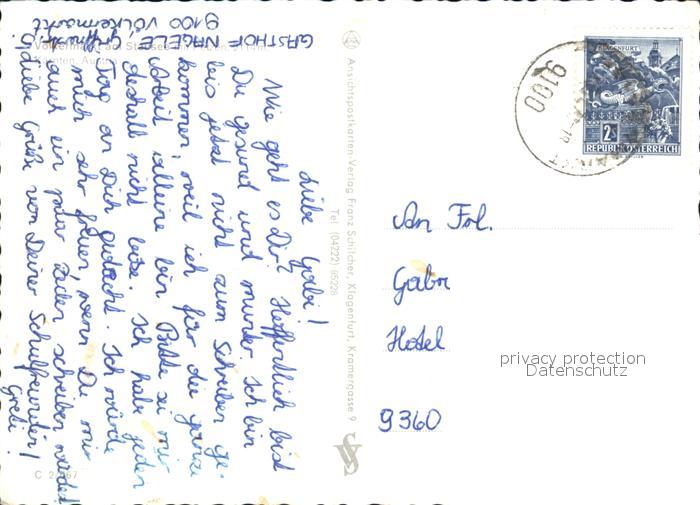 Liebe Gabi!
Wie geht es Dir? Hoffentlich bist
Du gesund und munter. Ich bin
bis jetzt nicht zum Schreiben ge-
kommen, weil ich für die ganze
Arbeit alleine bin. Bitte sei mir
deshalb nicht böse. Ich habe jeden
Tag an Dich gedacht. Ich würde
mich sehr freuen, wenn Du mir
auch ein paar Zeilen schreiben würdest
Liebe Grüße von Deiner Schulfreundin!
Greti!
GASTHOF NAGELE
9100 VÖLKERMARKT
Völkermarkt
Kärnten, Austria
C 2
Ansichtspostkarten-Verlag Franz Schilcher, Klagenfurt, Kramergasse 9
Tel. (04222) 85228
KLAGENFURT
2S
REPUBLIK ÖSTERREICH
9100
An Frl.
Gabi
Hotel
9360
privacy protection
Datenschutz